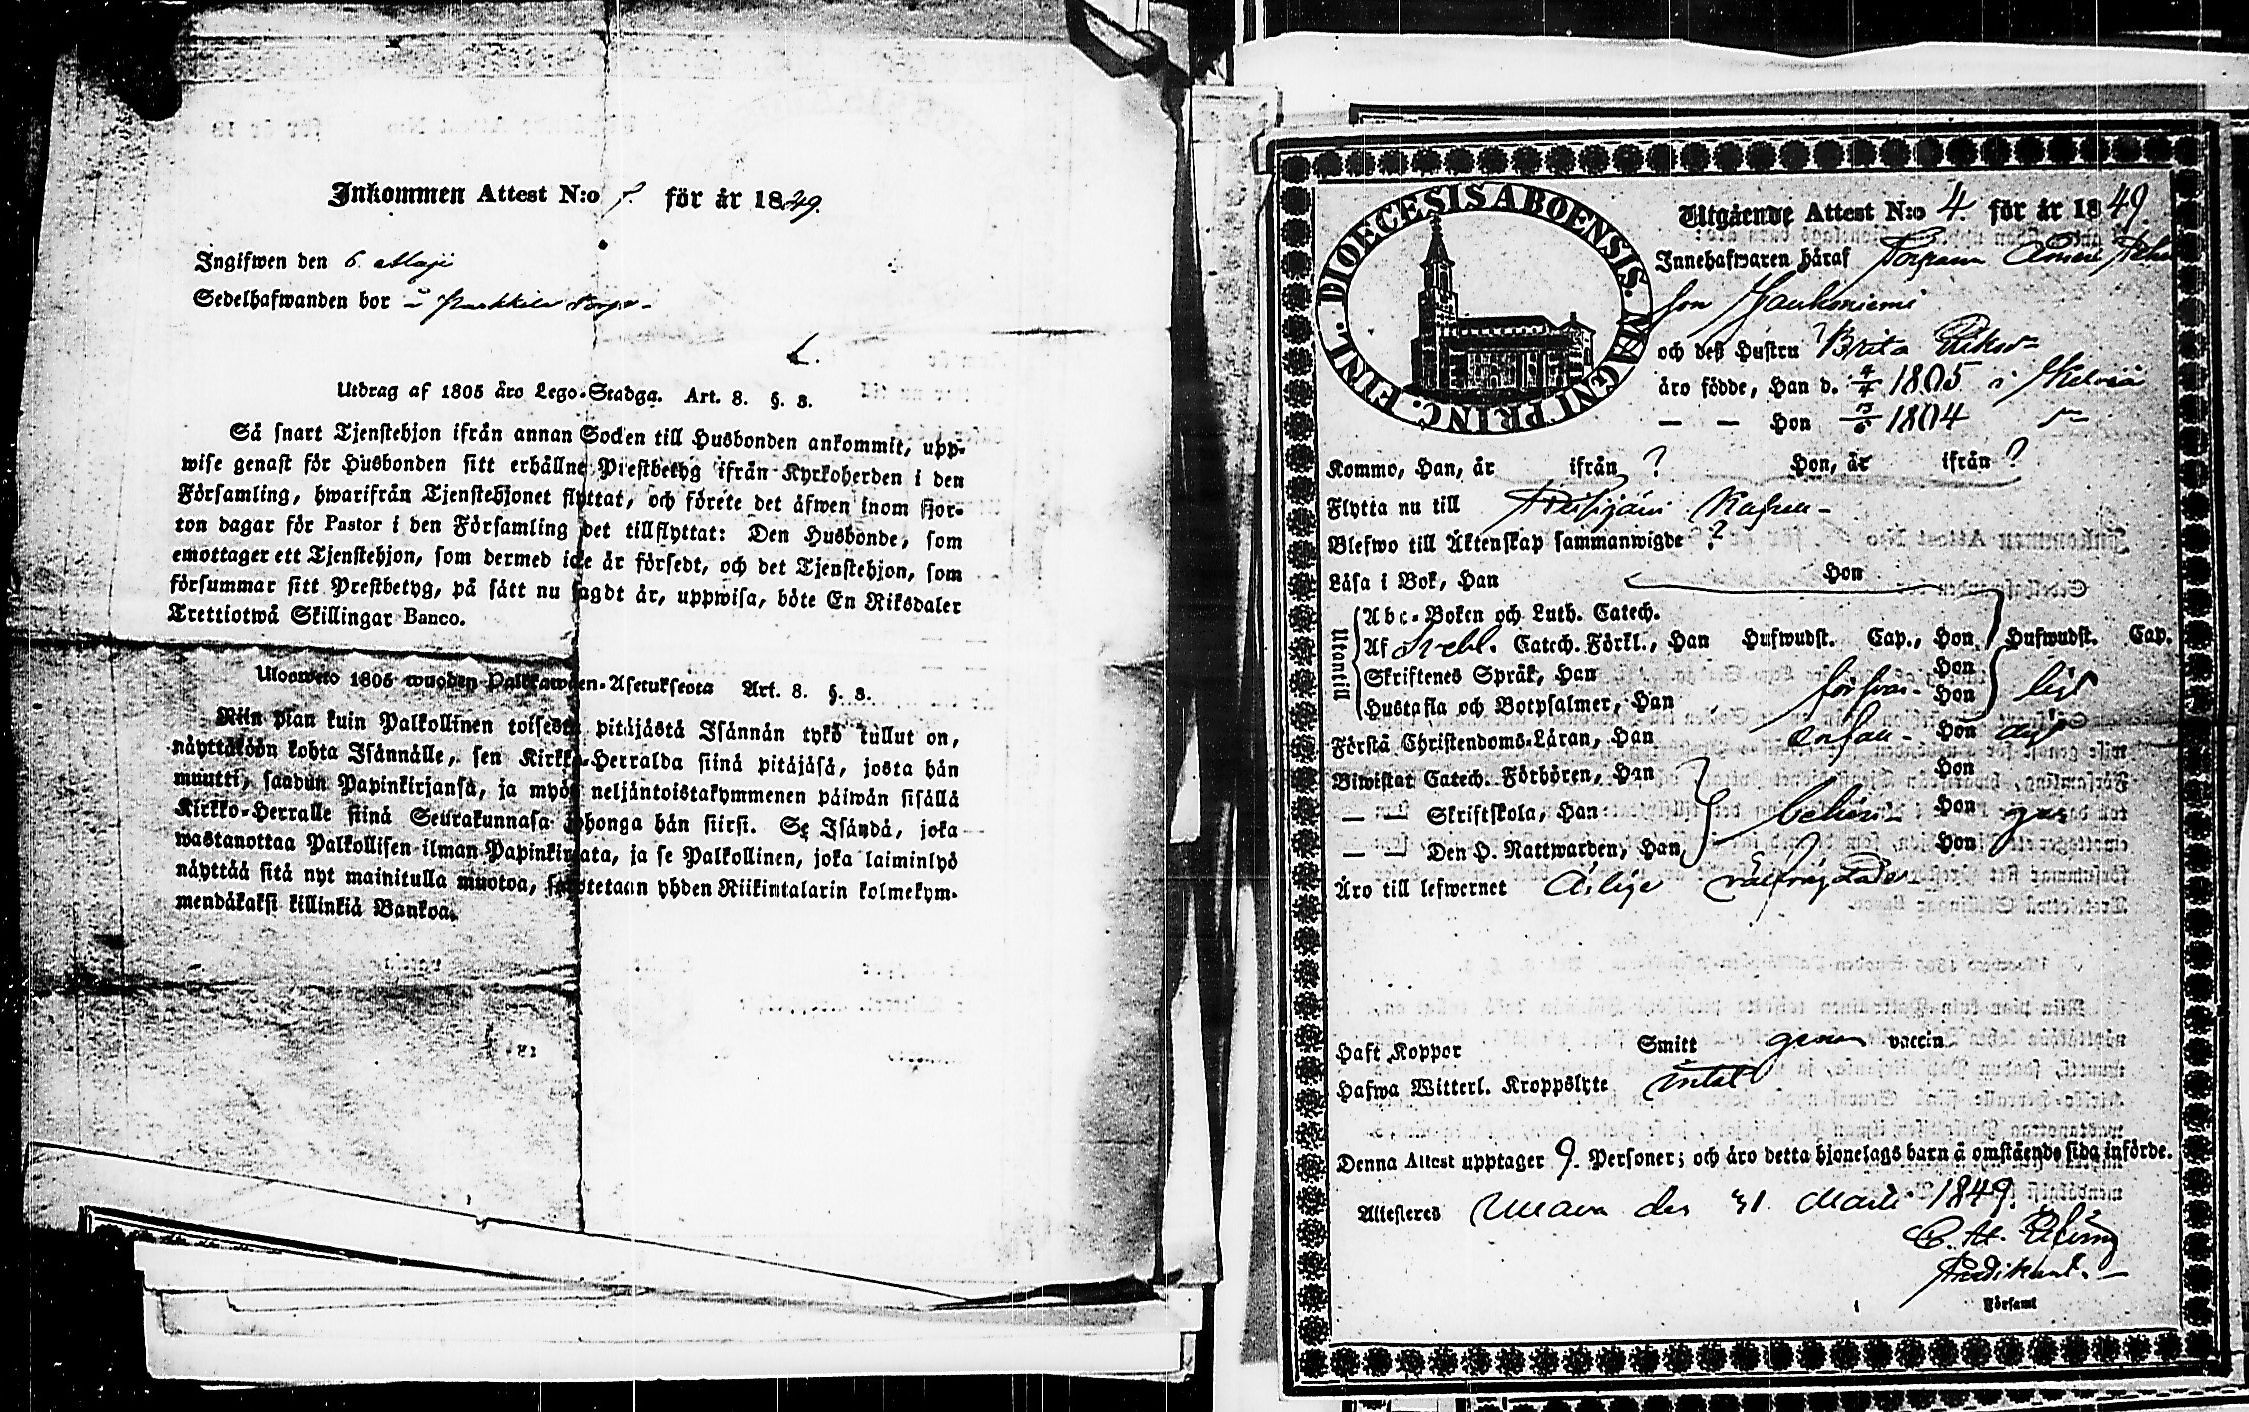 Inkommen Attest N:o 7. för år 1849.
Ingifwen den 6. Maji
Sedelhafwanden bor i
Utdrag af 1805 åro Lego-Stadga. Art. 8. §. 8.
Så snart Tjenstehjon ifrån annan Socken till Husbonden ankommit, upp-
wise genast för Husbonden sitt erhållne Prestbetyg ifrån Kyrkoherden i den
Församling, hwarifrån Tjenstehjonet flyttat, och förete det äfwen inom fjor-
ton dagar för Pastor i den Församling det tillflyttat: Den Husbonde, som
emottager ett Tjenstehjon, som dermed icke är försedt, och det Tjenstehjon, som
försummar sitt Prestbetyg, på sätt nu sagdt är, uppwisa, böte En Riksdaler
Trettiotwå Skillingar Banco.
Uloswedo 1805 wuoden Palkkawäen-Asetuksesta Art. 8. §. 8.
Niin pian kuin Palkollinen toisesta pitäjästä Isännän tykö tullut on,
näyttäköön kohta Isännälle, sen Kirkko-Herralda siinä pitäjäsä, josta hän
muutti, saadun Papinkirjansa, ja myös neljäntoistakymmenen päiwän sisällä
Kirkko-Herralle siinä Seurakunnasa johonga hän siirsi. Se Isändä, joka
wastanottaa Palkollisen ilman Papinkirjata, ja se Palkollinen, joka laiminlyö
näyttää sitä nyt mainitulla muotoa, sakotetaan yhden Riikintalarin kolmekym-
mendäkaksi killinkiä Bankoa.
DIOECESIS ABOENSIS. MAGNI PRINC. FINL.
Utgående Attest N:o 4. för år 1849.
Innehafwaren häraf
son Haukoniemi
och deß Hustru Brita
äro födde, Han d. 4/4 1805 i Kelviå
— — Hon 13/6 1804
Kommo, Han, år ifrån ? Hon, år ifrån ?
Flytta nu till
Blefwo till Äktenskap sammanwigde ?
Läsa i Bok, Han Hon
Utantill
Abc-Boken och Luth. Catech.
Af Svebel. Catech. Förkl., Han Hufwudst. Cap., Hon Hufwudst. Cap.
Skriftenes Språk, Han Hon
Hustafla och Botpsalmer, Han försvar- Hon ligt
Förstå Christendoms-Läran, Han enfal- Hon digt
Biwistat Catech. Förhören, Han Hon
— — Skriftskola, Han behöri- Hon gen
— — Den H. Nattwarden, Han Hon
Äro till lefwernet ärlige välfrägdade
Haft Koppor Smitt genom vaccin
Hafwa Witterl. Kroppslyte intet
Denna Attest upptager 9. Personer; och äro detta hjonelags barn å omstående sida införde.
Attesteras Ullava den 31. Martii 1849.
Predikant.
Församl